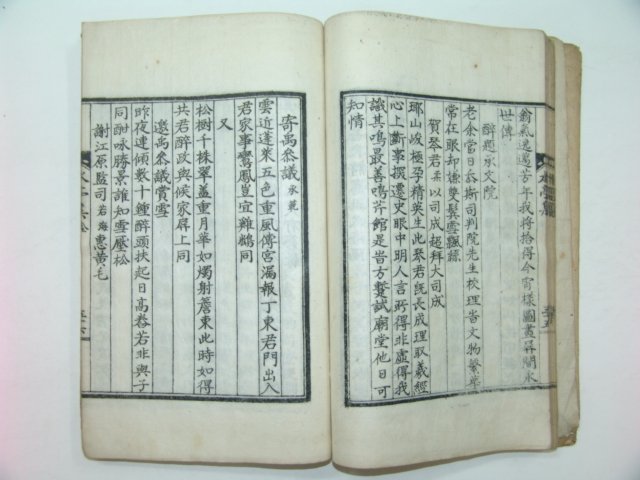 翁氣逸邁芳年我將拾得今宵樣圖畫屏間永
世傳
醉題承文院
老余當日忝斯司判院先生校理皆文物繁華
常在眼却嫌雙鬢雪飄絲
賀琴君系以司成超拜大司成
琊山峻極孕精英生此琴君旣長成理取羲經
心上斷事撰遷史眼中明人言所得非虛得我
識其鳴最善鳴芹館是皆方贊試廟堂他日可
知情
寄禹叅議承範
雲近蓬萊五色重風傳宮漏報丁東君門出入
君家事鸞鳳豈宜雞鶴同
又
松樹千株翠蓋重月華如燭射簷東此時如得
共君醉政與侯家屏上同
邀禹叅議賞雪
昨夜連傾數十鍾醉頭扶起日高舂若非與子
同酣咏勝景誰知雪壓松
謝江原監司若海惠黃毛